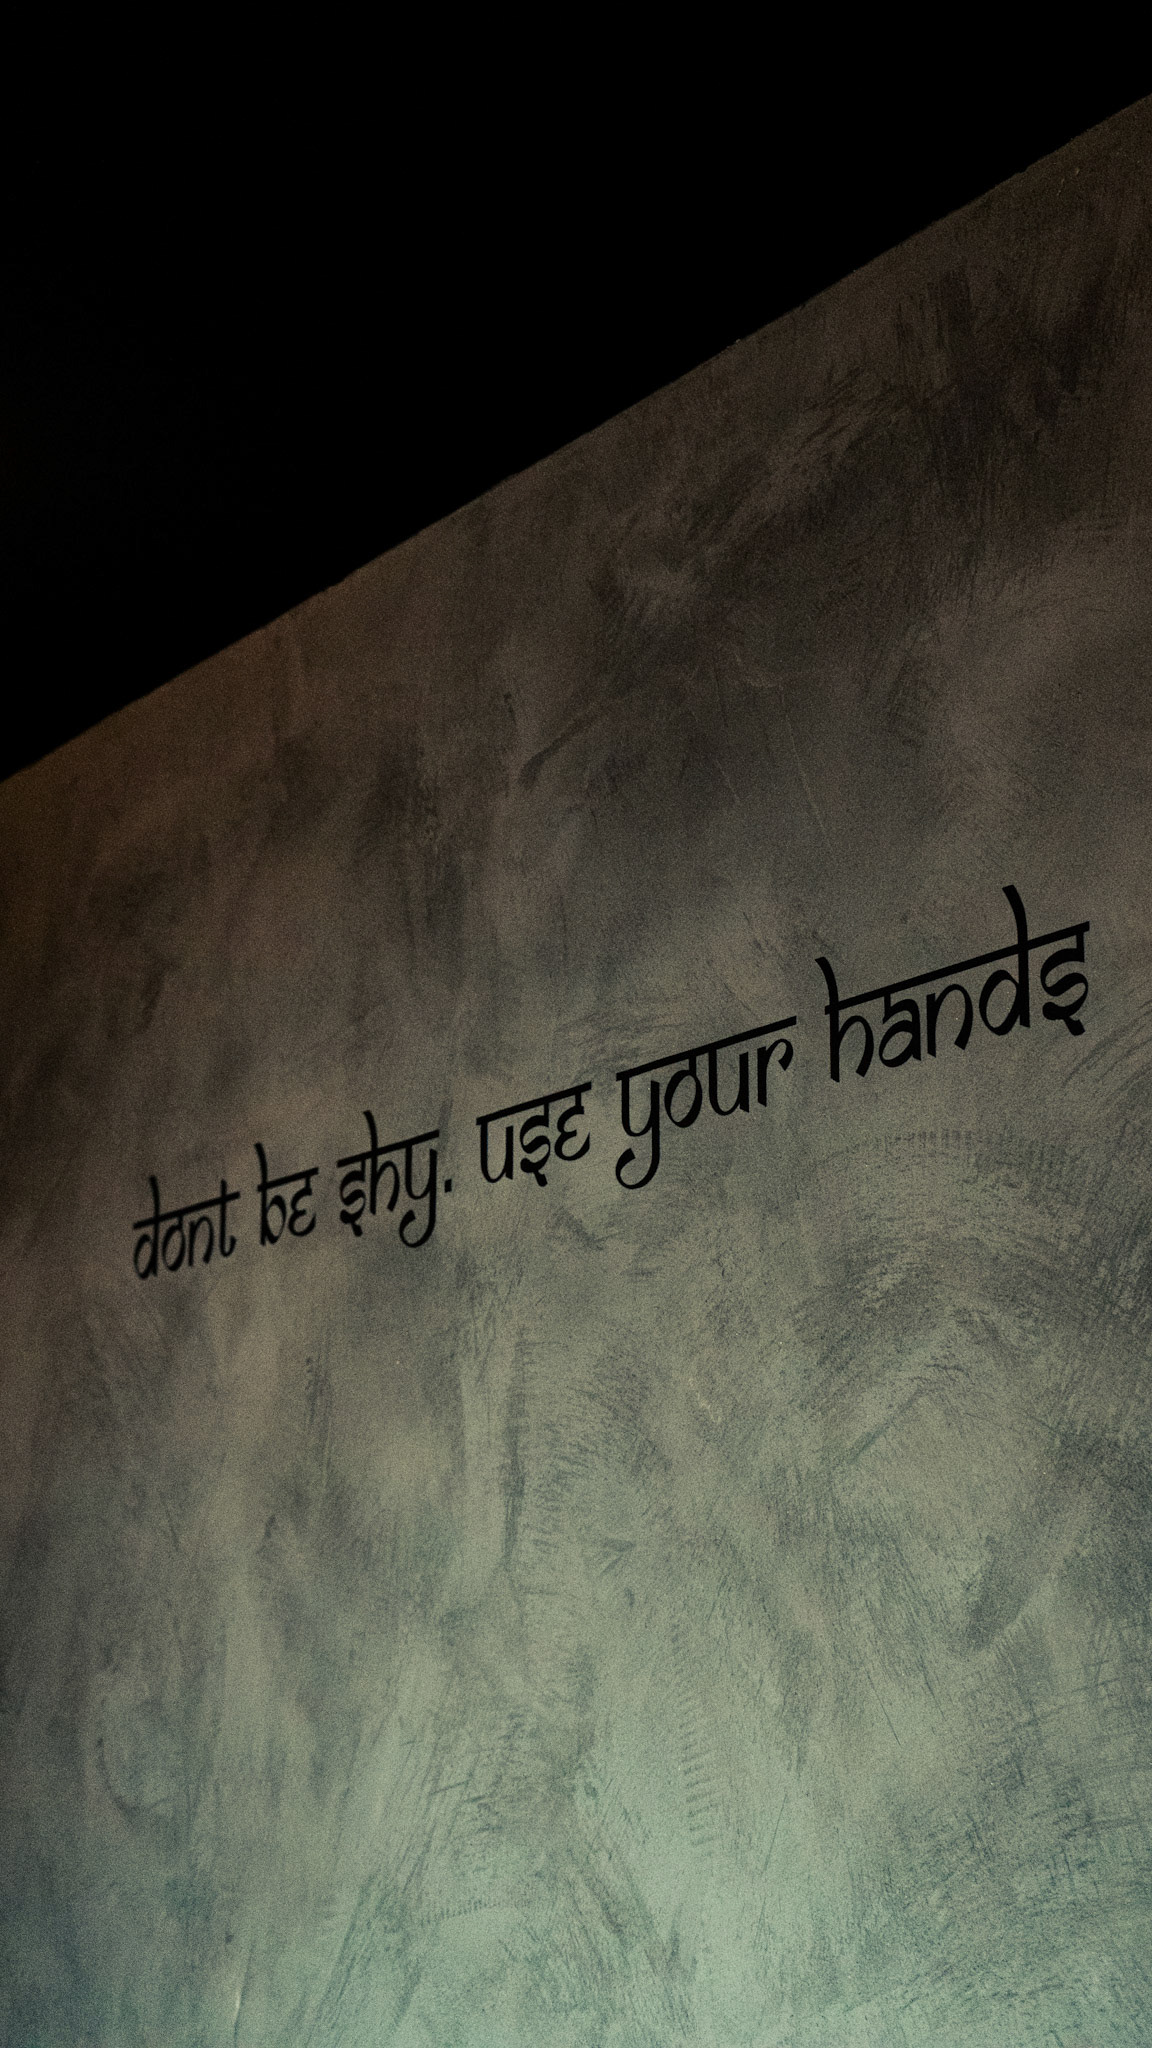 dont be shy. use your hands